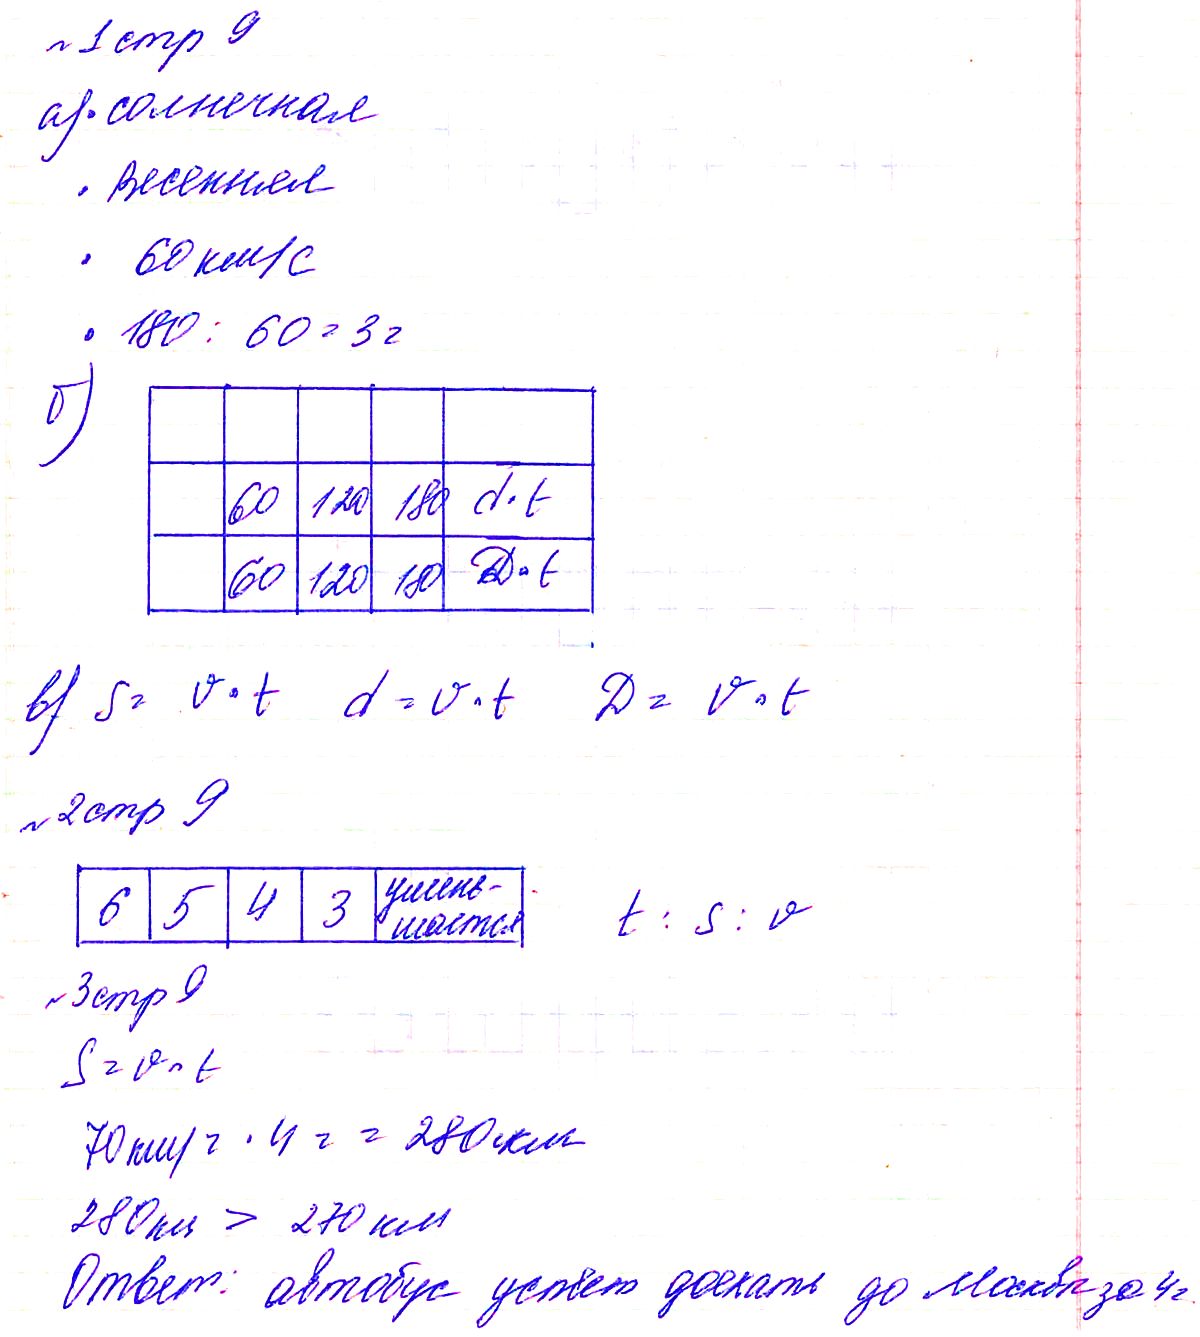 №1 стр 9
а) • солнечная
• весенняя
• 60 км/с
• 180 : 60 = 3 ч
б)
60 120 180 d·t
60 120 180 D·t
в) S = v·t d = v·t D = v·t
№2 стр 9
6 5 4 3 умень-
шается t : s : v
№3 стр 9
S = v·t
70 км/ч · 4 ч = 280 км
280 км > 270 км
Ответ: автобус успеет доехать до Москвы за 4 ч.